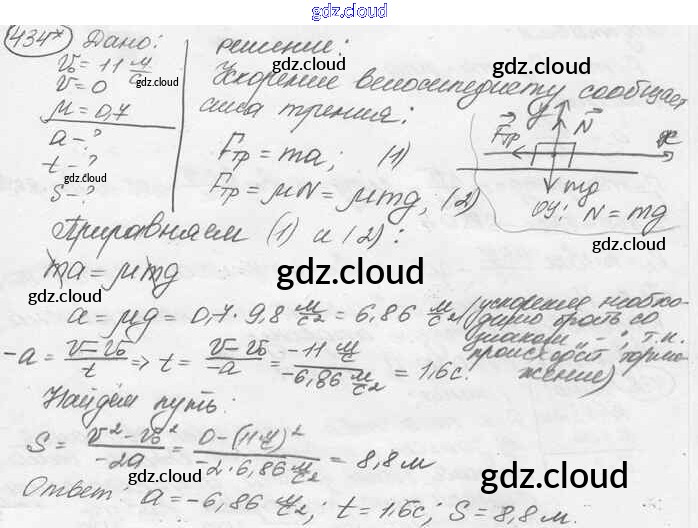 gdz.cloud
434* Дано: решение:
v₀ = 11 м/с Ускорение велосипедисту сообщает
v = 0 сила трения:
μ = 0,7
a - ? Fтр = ma; (1)
t - ? Fтр = μN = μmg; (2)
S - ?
y N Fтр x mg
oy: N = mg
Приравняем (1) и (2):
ma = μmg
a = μg = 0,7 · 9,8 м/с² = 6,86 м/с² (ускорение необхо-
димо брать со
знаком „-", т.к.
происходит тормо-
жение)
-a = (v - v₀)/t => t = (v - v₀)/-a = (-11 м/с)/(-6,86 м/с²) = 1,6с.
Найдём путь:
S = (v² - v₀²)/-2a = (0 - (11 м/с)²)/(-2 · 6,86 м/с²) = 8,8 м
Ответ: a = -6,86 м/с²; t = 1,6с; S = 8,8 м.
gdz.cloud
gdz.cloud
gdz.cloud
gdz.cloud
gdz.cloud
gdz.cloud
gdz.cloud
gdz.cloud
gdz.cloud
gdz.cloud
gdz.cloud